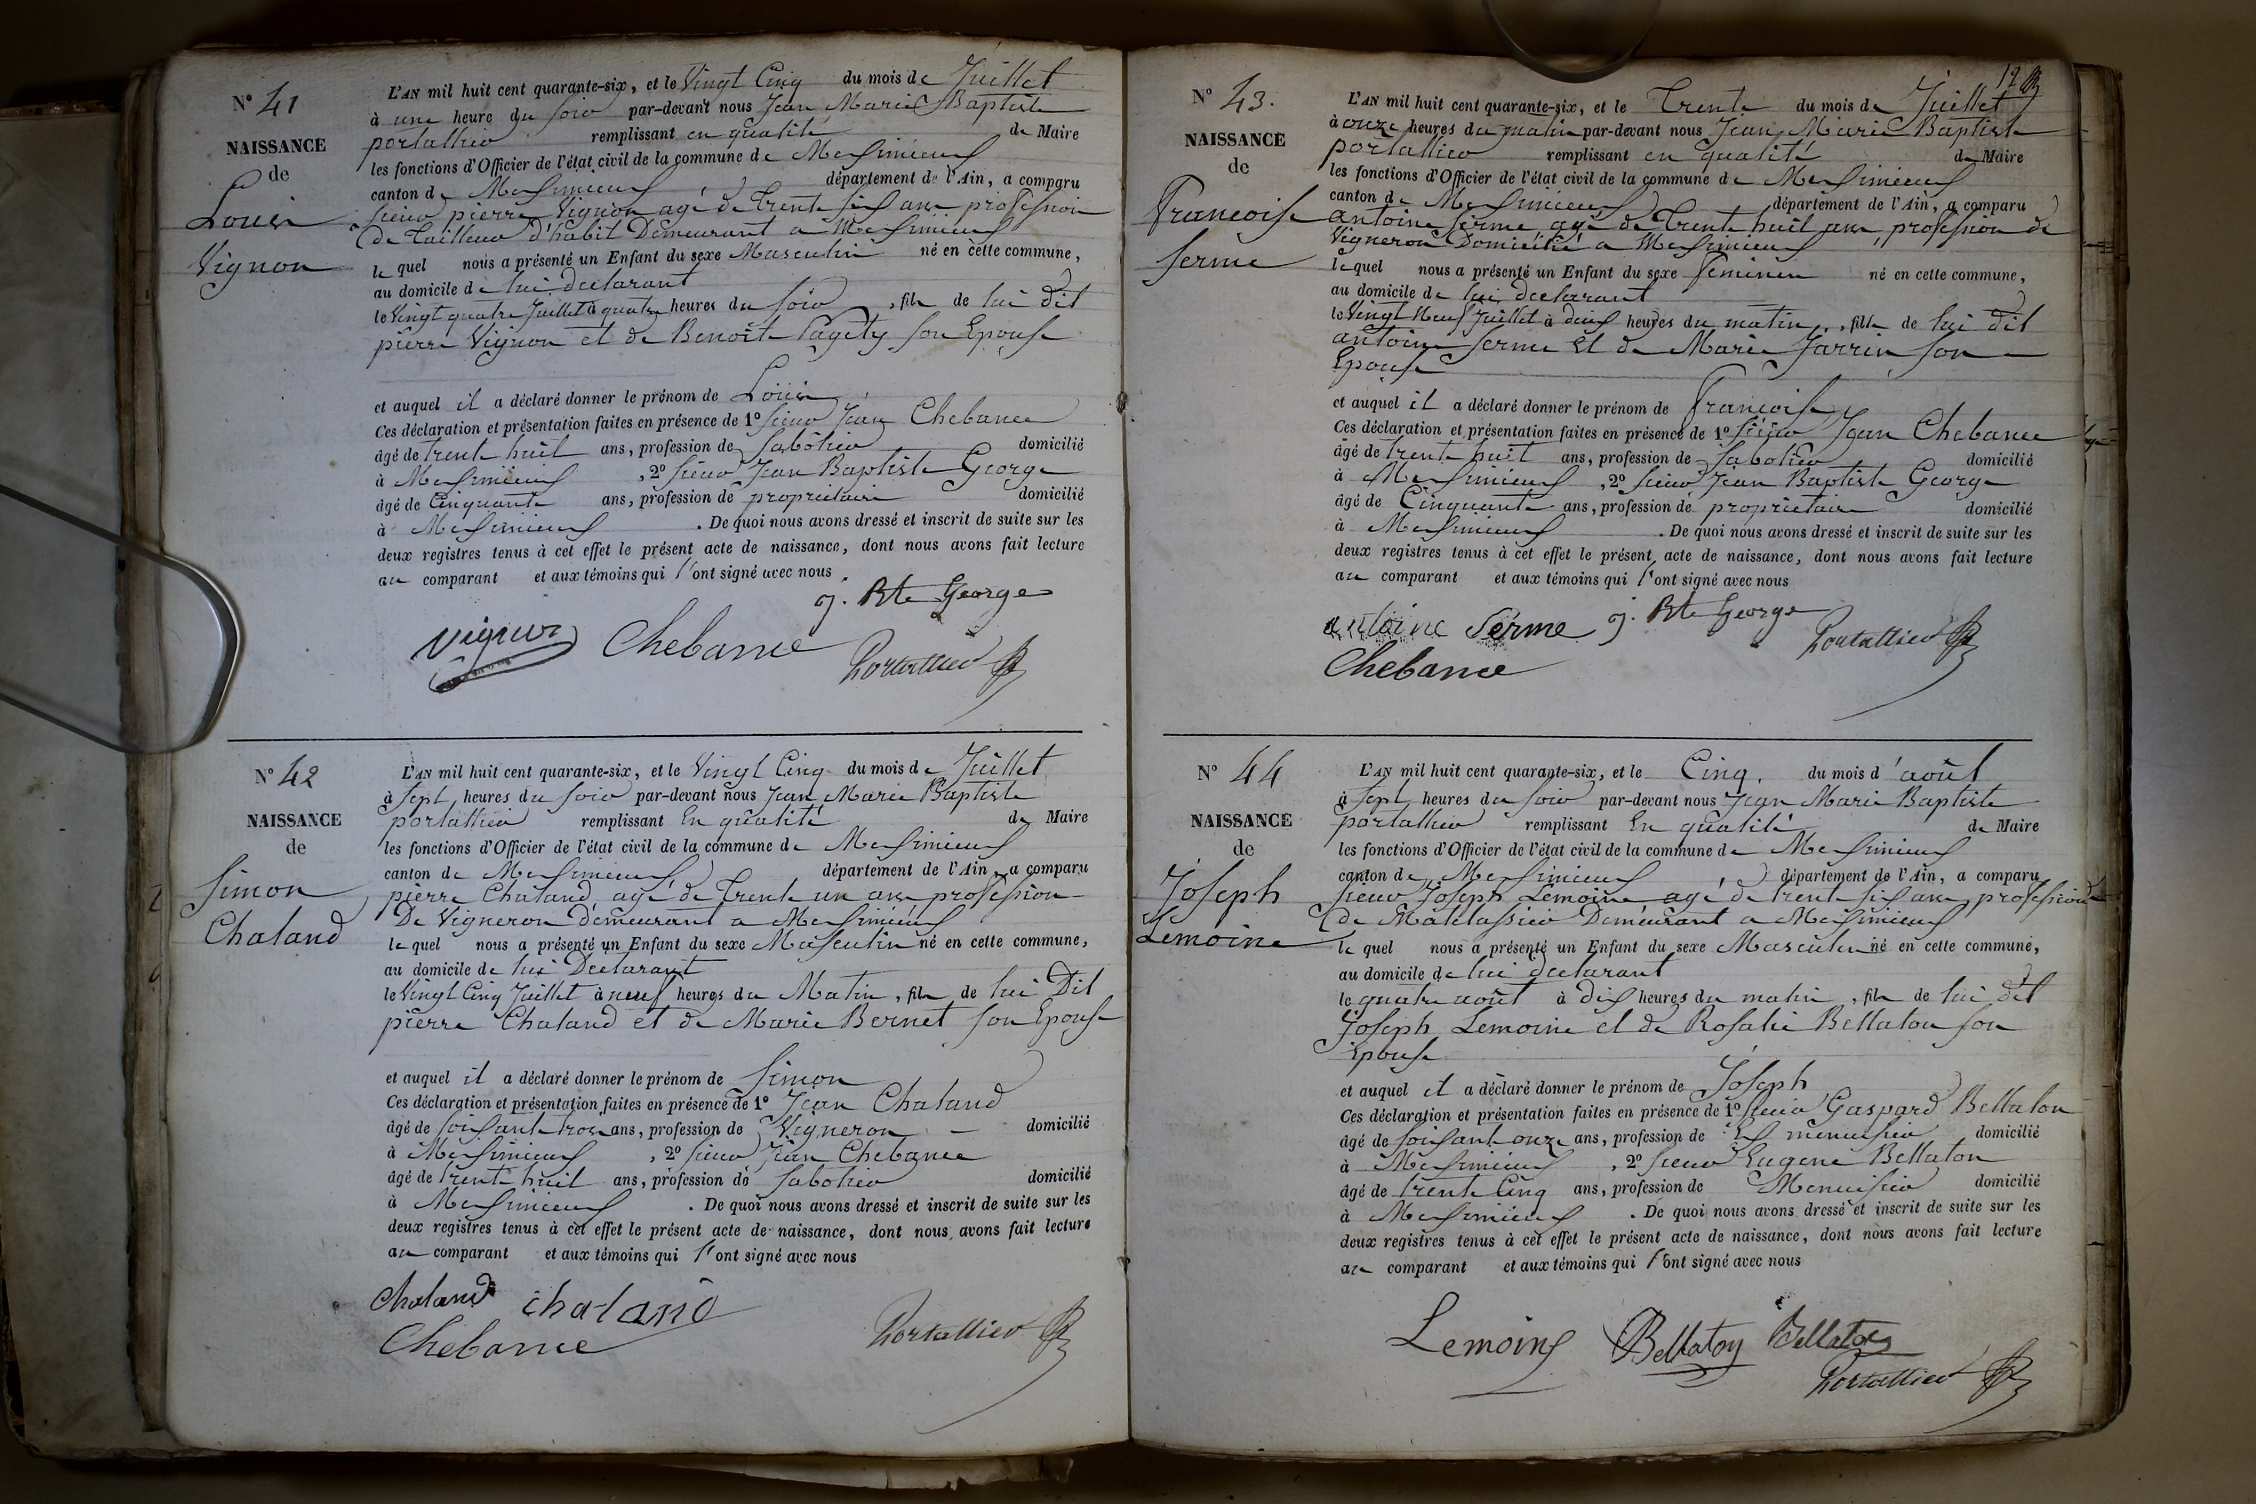 N° 41
NAISSANCE
de
Louis
Vignon
L'AN mil huit cent quarante-six, et le Vingt Cinq du mois de Juillet
à une heure du soir par-devant nous Jean Marie Baptiste
portallier remplissant en qualité de Maire
les fonctions d'Officier de l'état civil de la commune de Messimieux
canton de Messimieux département de l'Ain, a comparu
sieur pierre Vignon agé de trente six ans profession
de tailleur d'habit Demeurant a Messimieux
le quel nous a présenté un Enfant du sexe Masculin né en cette commune,
au domicile de lui declarant
le Vingt quatre Juillet à quatre heures du soir, fils de lui dit
pierre Vignon et de Benoite Pagety son Epouse
et auquel il a déclaré donner le prénom de Louis
Ces déclaration et présentation faites en présence de 1° sieur Jean Chebance
âgé de trente huit ans, profession de Sabotier domicilié
à Messimieux, 2° sieur Jean Baptiste George
âgé de Cinquante ans, profession de propriétaire domicilié
à Messimieux. De quoi nous avons dressé et inscrit de suite sur les
deux registres tenus à cet effet le présent acte de naissance, dont nous avons fait lecture
au comparant et aux témoins qui l'ont signé avec nous.
j. Bte George
Vignon Chebance Portallier
N° 42
NAISSANCE
de
Simon
Chaland
L'AN mil huit cent quarante-six, et le Vingt Cinq du mois de Juillet
à sept heures du soir par-devant nous Jean Marie Baptiste
portallier remplissant En qualité de Maire
les fonctions d'Officier de l'état civil de la commune de Messimieux
canton de Messimieux département de l'Ain, a comparu
pierre Chaland, agé de trente un ans profession
De Vigneron demeurant a Messimieux
le quel nous a présenté un Enfant du sexe Masculin né en cette commune,
au domicile de lui Déclarant
le Vingt Cinq Juillet à neuf heures du Matin, fils de lui Dit
pierre Chaland et de Marie Bernet son Epouse
et auquel il a déclaré donner le prénom de Simon
Ces déclaration et présentation faites en présence de 1° Jean Chaland
âgé de soixante trois ans, profession de Vigneron domicilié
à Messimieux, 2° sieur Jean Chebance
âgé de trente huit ans, profession de Sabotier domicilié
à Messimieux. De quoi nous avons dressé et inscrit de suite sur les
deux registres tenus à cet effet le présent acte de naissance, dont nous avons fait lecture
au comparant et aux témoins qui l'ont signé avec nous
Chaland chaland
Chebance Portallier
N° 43.
NAISSANCE
de
Francoise
Serme
L'AN mil huit cent quarante-six, et le Trente du mois de Juillet
à onze heures du matin par-devant nous Jean Marie Baptiste
portallier remplissant en qualité de Maire
les fonctions d'Officier de l'état civil de la commune de Messimieux
canton de Messimieux département de l'Ain, a comparu
antoine Serme, agé de trente huit ans, profession de
Vigneron Domicilié a Messimieux
le quel nous a présenté un Enfant du sexe Feminin né en cette commune,
au domicile de lui declarant
le Vingt Neuf Juillet à deux heures du matin, fille de lui dit
antoine Serme Et de Marie Jarrin son
Epouse
et auquel il a déclaré donner le prénom de Francoise
Ces déclaration et présentation faites en présence de 1° sieur Jean Chebance
âgé de trente huit ans, profession de Sabotier domicilié
à Messimieux, 2° sieur Jean Baptiste George
âgé de Cinquante ans, profession de propriétaire domicilié
à Messimieux. De quoi nous avons dressé et inscrit de suite sur les
deux registres tenus à cet effet le présent acte de naissance, dont nous avons fait lecture
au comparant et aux témoins qui l'ont signé avec nous
antoine Serme j. Bte George Portallier
Chebance
N° 44
NAISSANCE
de
Joseph
Lemoine
L'AN mil huit cent quarante-six, et le Cinq du mois d'août
à sept heures du soir par-devant nous Jean Marie Baptiste
portallier remplissant En qualité de Maire
les fonctions d'Officier de l'état civil de la commune de Messimieux
canton de Messimieux département de l'Ain, a comparu
sieur Joseph Lemoine agé de trente six ans, profession
de Matelassier Demeurant a Messimieux
le quel nous a présenté un Enfant du sexe Masculin né en cette commune,
au domicile de lui declarant
le quatre août à dix heures du matin, fils de lui dit
Joseph Lemoine et de Rosalie Bellaton son
Epouse
et auquel il a déclaré donner le prénom de Joseph
Ces déclaration et présentation faites en présence de 1° sieur Gaspard Bellaton
âgé de soixante onze ans, profession de Ex menuisier domicilié
à Messimieux, 2° sieur Eugene Bellaton
âgé de trente Cinq ans, profession de Menuisier domicilié
à Messimieux. De quoi nous avons dressé et inscrit de suite sur les
deux registres tenus à cet effet le présent acte de naissance, dont nous avons fait lecture
au comparant et aux témoins qui l'ont signé avec nous
Lemoine Bellaton Bellaton
Portallier